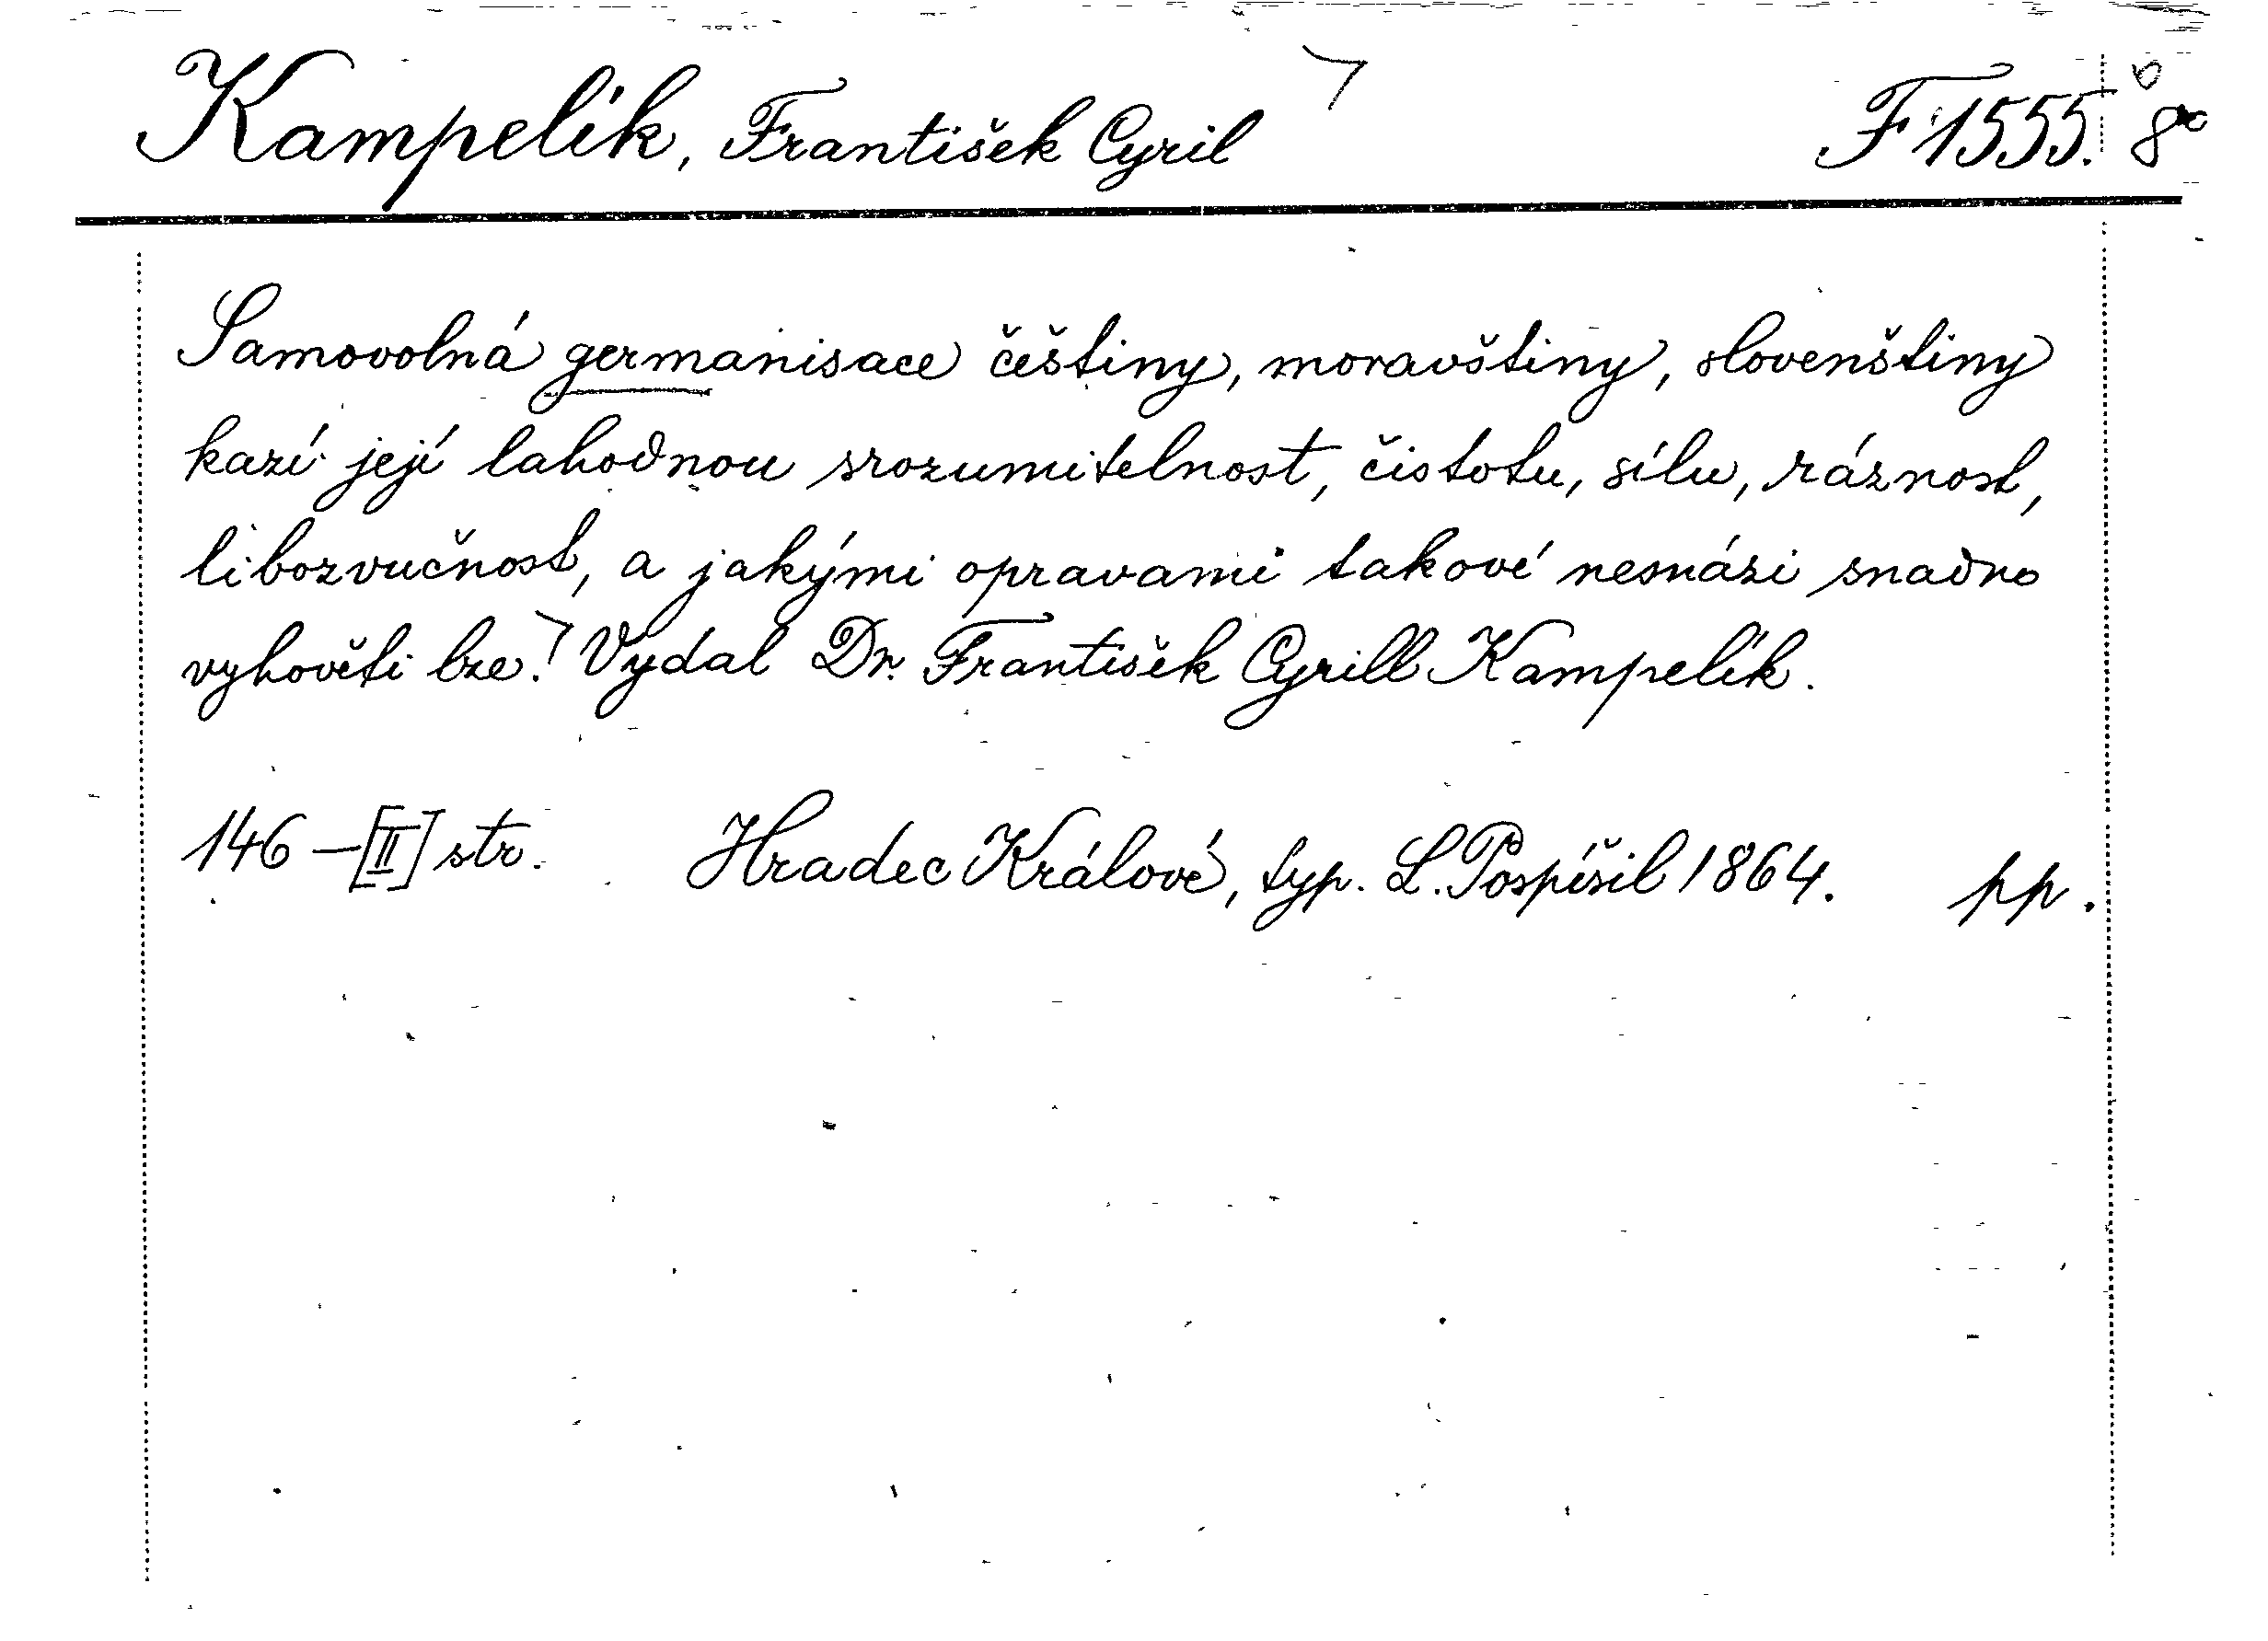 Kampelík, František Cyril F 1555. 8°
Samovolná germanisace češtiny, moravštiny, slovenštiny
kazí její lahodnou srozumitelnost, čistotu, sílu, ráznost,
libozvučnost, a jakými opravami takové nesnázi snadno
vyhověti lze! Vydal Dr. František Cyrill Kampelík.
146 – [II] str. Hradec Králové, typ. L. Pospíšil 1864. pp.